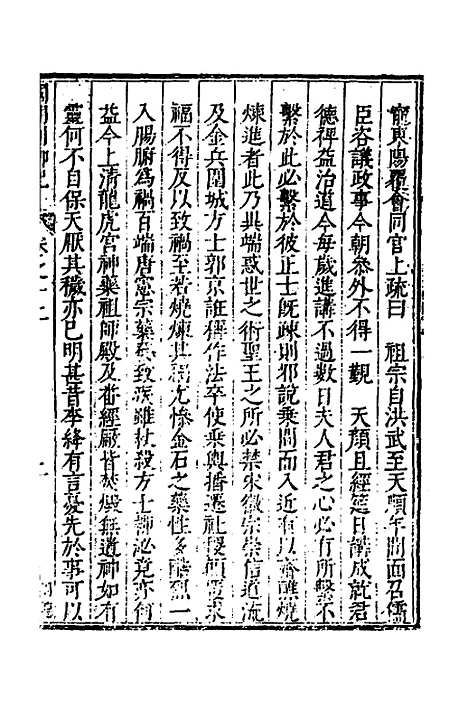 寵東陽復會同官上疏曰　祖宗自洪武至天順年間面召儒
臣咨議政事今朝叅外不得一覿　天顏且經筵日講成就君
德裨益治道今每歲進講不過數日夫人君之心必有所繫不
繫於此必繫於彼正士既疎則邪說乗間而入近有以齋醮燒
煉進者此乃異端惑世之術聖王之所必禁宋徽宗崇信道流
及金兵圍城方士郭京誑稱作法卒使乗輿播遷社稷傾覆求
福不得反以致禍至若燒煉其禍尤慘金石之藥性多酷烈一
入腸腑為禍百端唐憲宗藥發致疾雖杖殺方士柳泌竟亦何
益今上清龍虎宮神藥祖師殿及番經厰皆焚燬無遺神如有
靈何不自保天厭其穢亦已明甚昔李絳有言憂先於事可以